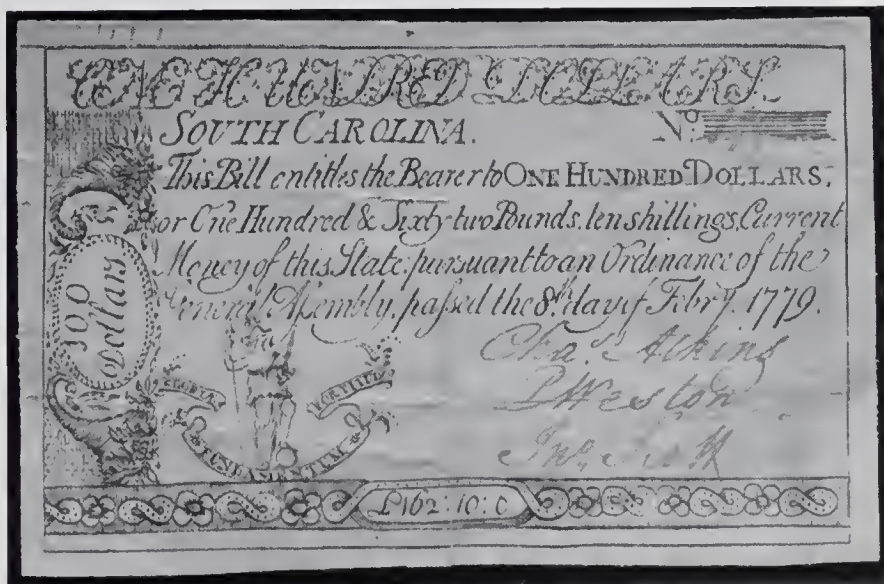 ONE HUNDRED DOLLARS.
SOUTH CAROLINA. No.
This Bill entitles the Bearer to ONE HUNDRED DOLLARS,
or One Hundred & Sixty two Pounds, ten shillings, Current
Money of this State; pursuant to an Ordinance of the
General Assembly, passed the 8th. day of Febry. 1779.
100
Dollars
Chas. Atkins
P Weston
Jno. Scott
FORTITUDO
FUNDAMENTUM
£162:10:0